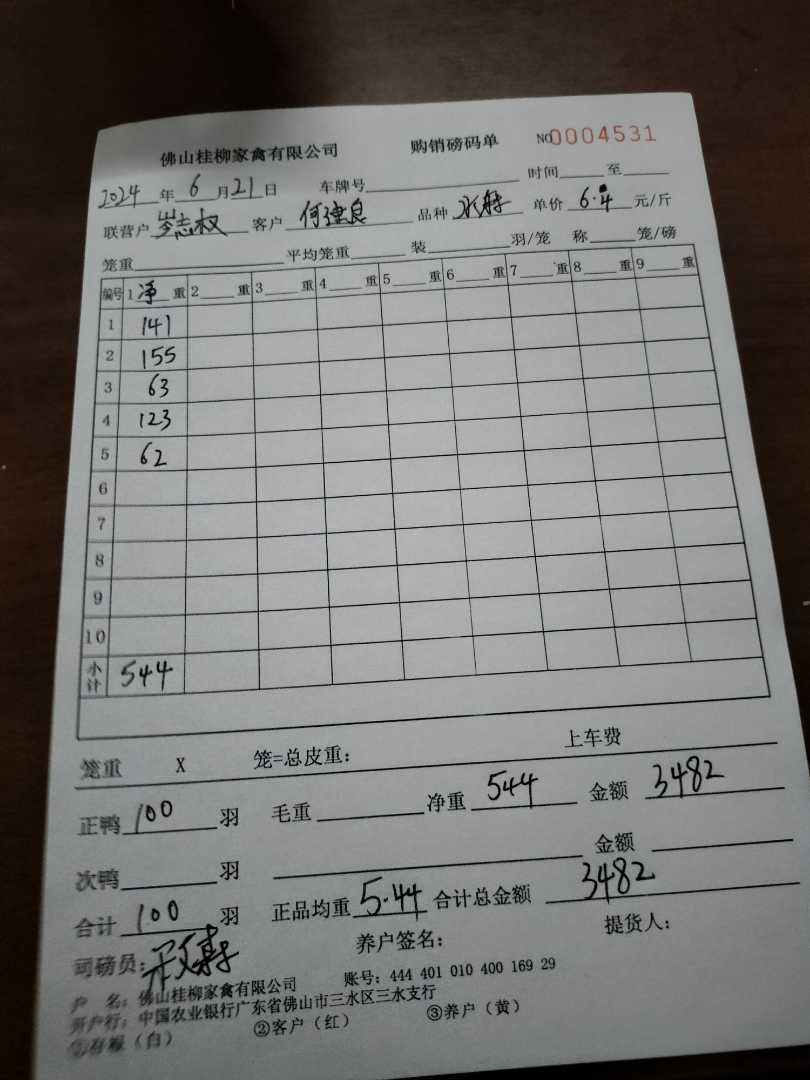 佛山桂柳家禽有限公司 购销磅码单 NO 0004531
2024年6月21日 车牌号 时间 至
联营户 岑志权 客户 何建良 品种 水鸭 单价 6.4 元/斤
笼重 平均笼重 装 羽/笼 称 笼/磅
编号 1 净 重 2 重 3 重 4 重 5 重 6 重 7 重 8 重 9 重
1 141
2 155
3 63
4 123
5 62
6
7
8
9
10
小计 544
笼重 X 笼=总皮重: 上车费
正鸭 100 羽 毛重 净重 544 金额 3482
次鸭 羽 金额
合计 100 羽 正品均重 5.44 合计总金额 3482
司磅员: 养户签名: 提货人:
户 名: 佛山桂柳家禽有限公司 账号: 444 401 010 400 169 29
开户行: 中国农业银行广东省佛山市三水区三水支行
①存根（白） ②客户（红） ③养户（黄）